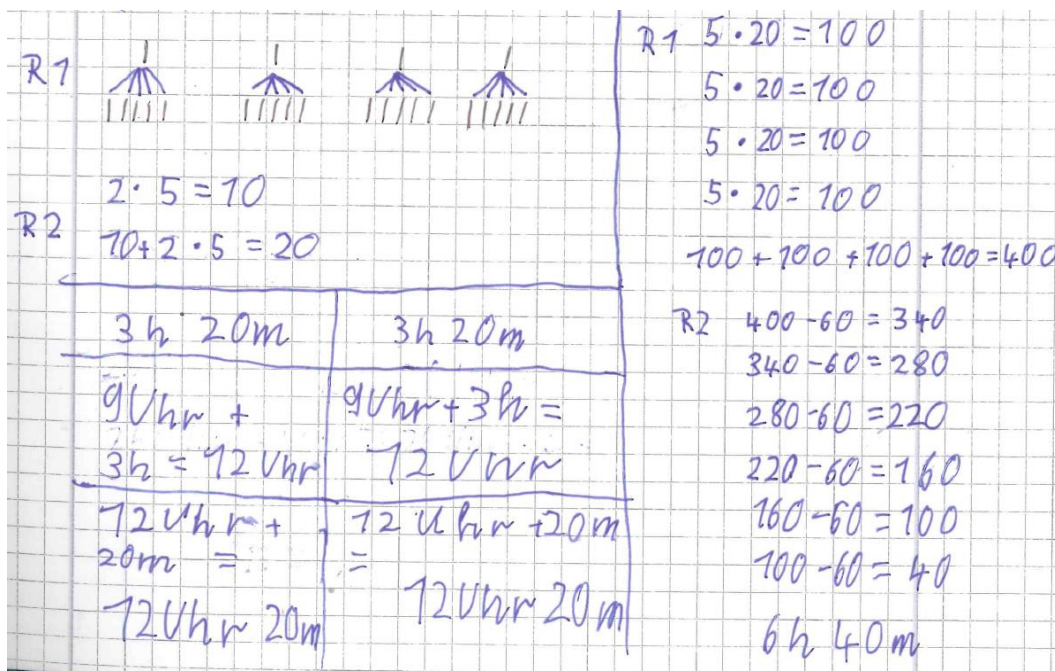 R1
2 · 5 = 10
R2
10 + 2 · 5 = 20
3h 20m
3h 20m
9 Uhr +
3h = 12 Uhr
9 Uhr + 3h =
12 Uhr
12 Uhr +
20m =
12 Uhr 20m
12 Uhr + 20m
=
12 Uhr 20m
R1 5 · 20 = 100
5 · 20 = 100
5 · 20 = 100
5 · 20 = 100
100 + 100 + 100 + 100 = 400
R2 400 - 60 = 340
340 - 60 = 280
280 - 60 = 220
220 - 60 = 160
160 - 60 = 100
100 - 60 = 40
6h 40m